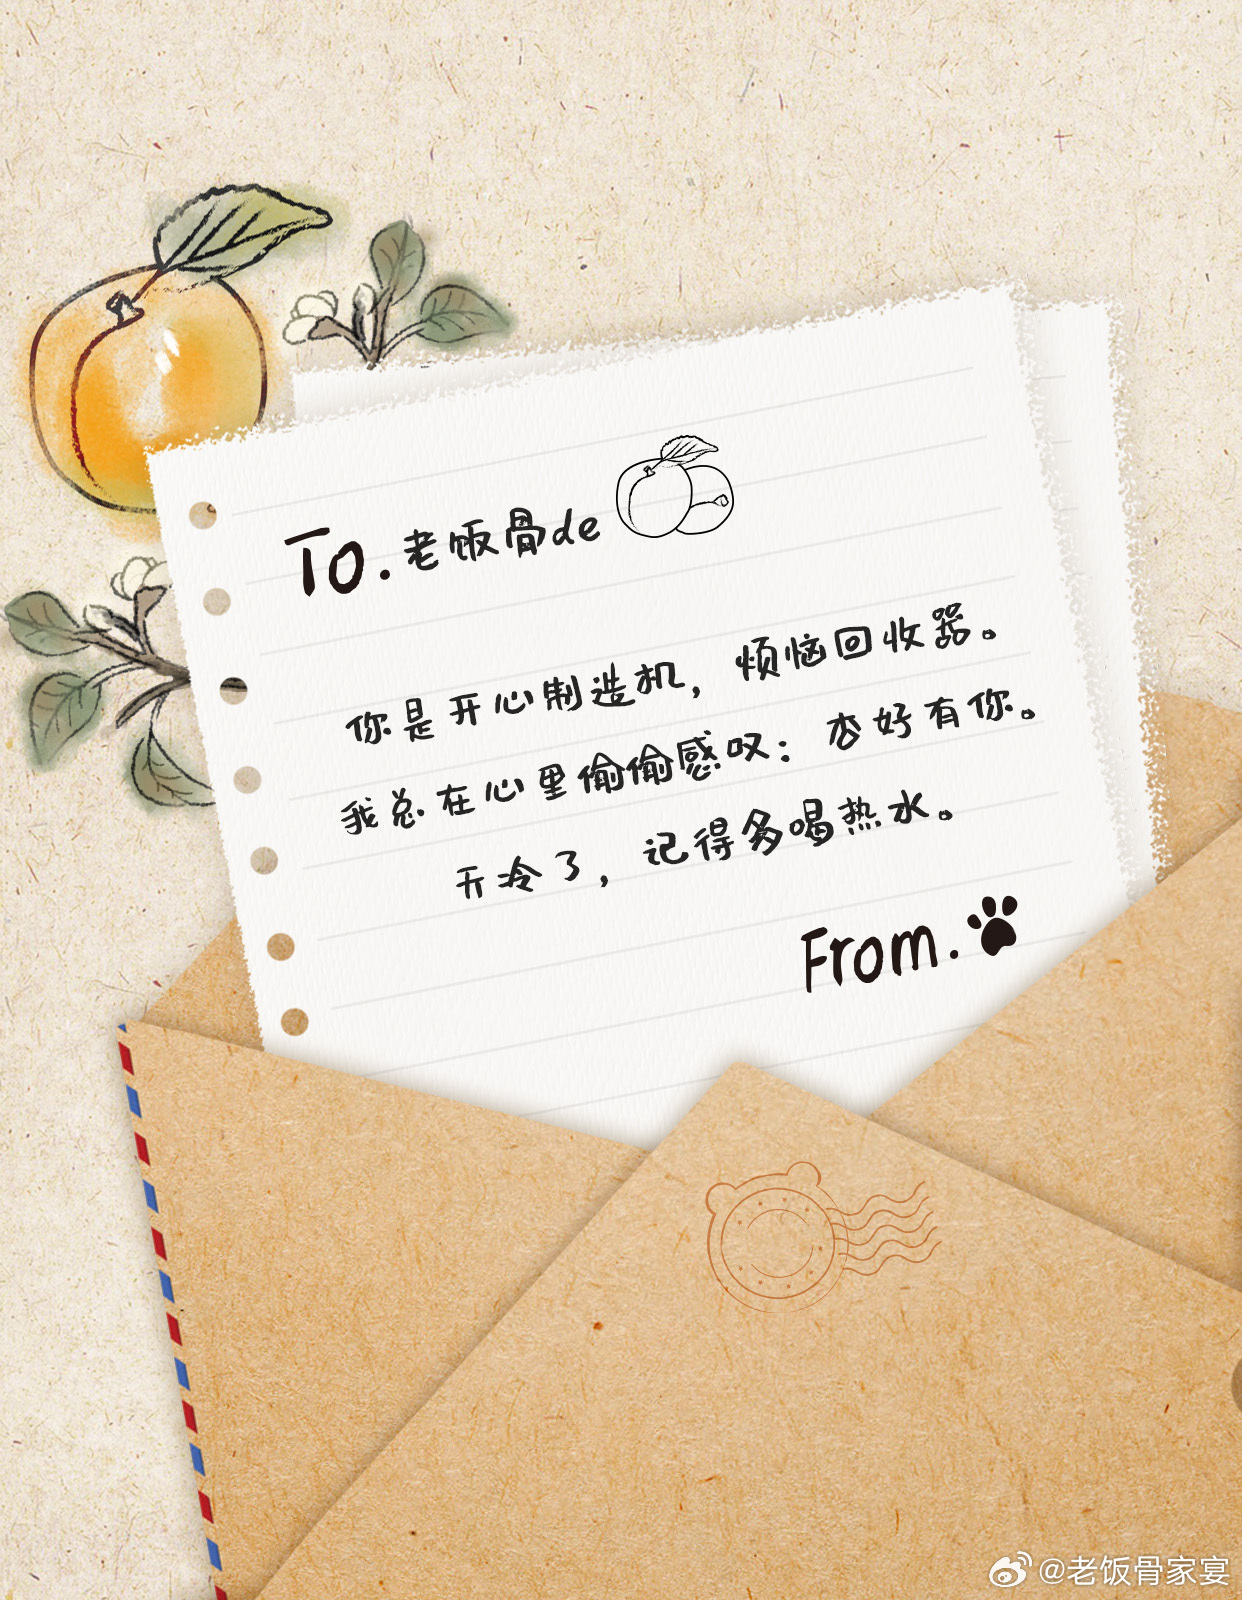 To.老饭骨de
你是开心制造机，烦恼回收器。
我总在心里偷偷感叹：杏好有你。
天冷了，记得多喝热水。
From.
@老饭骨家宴